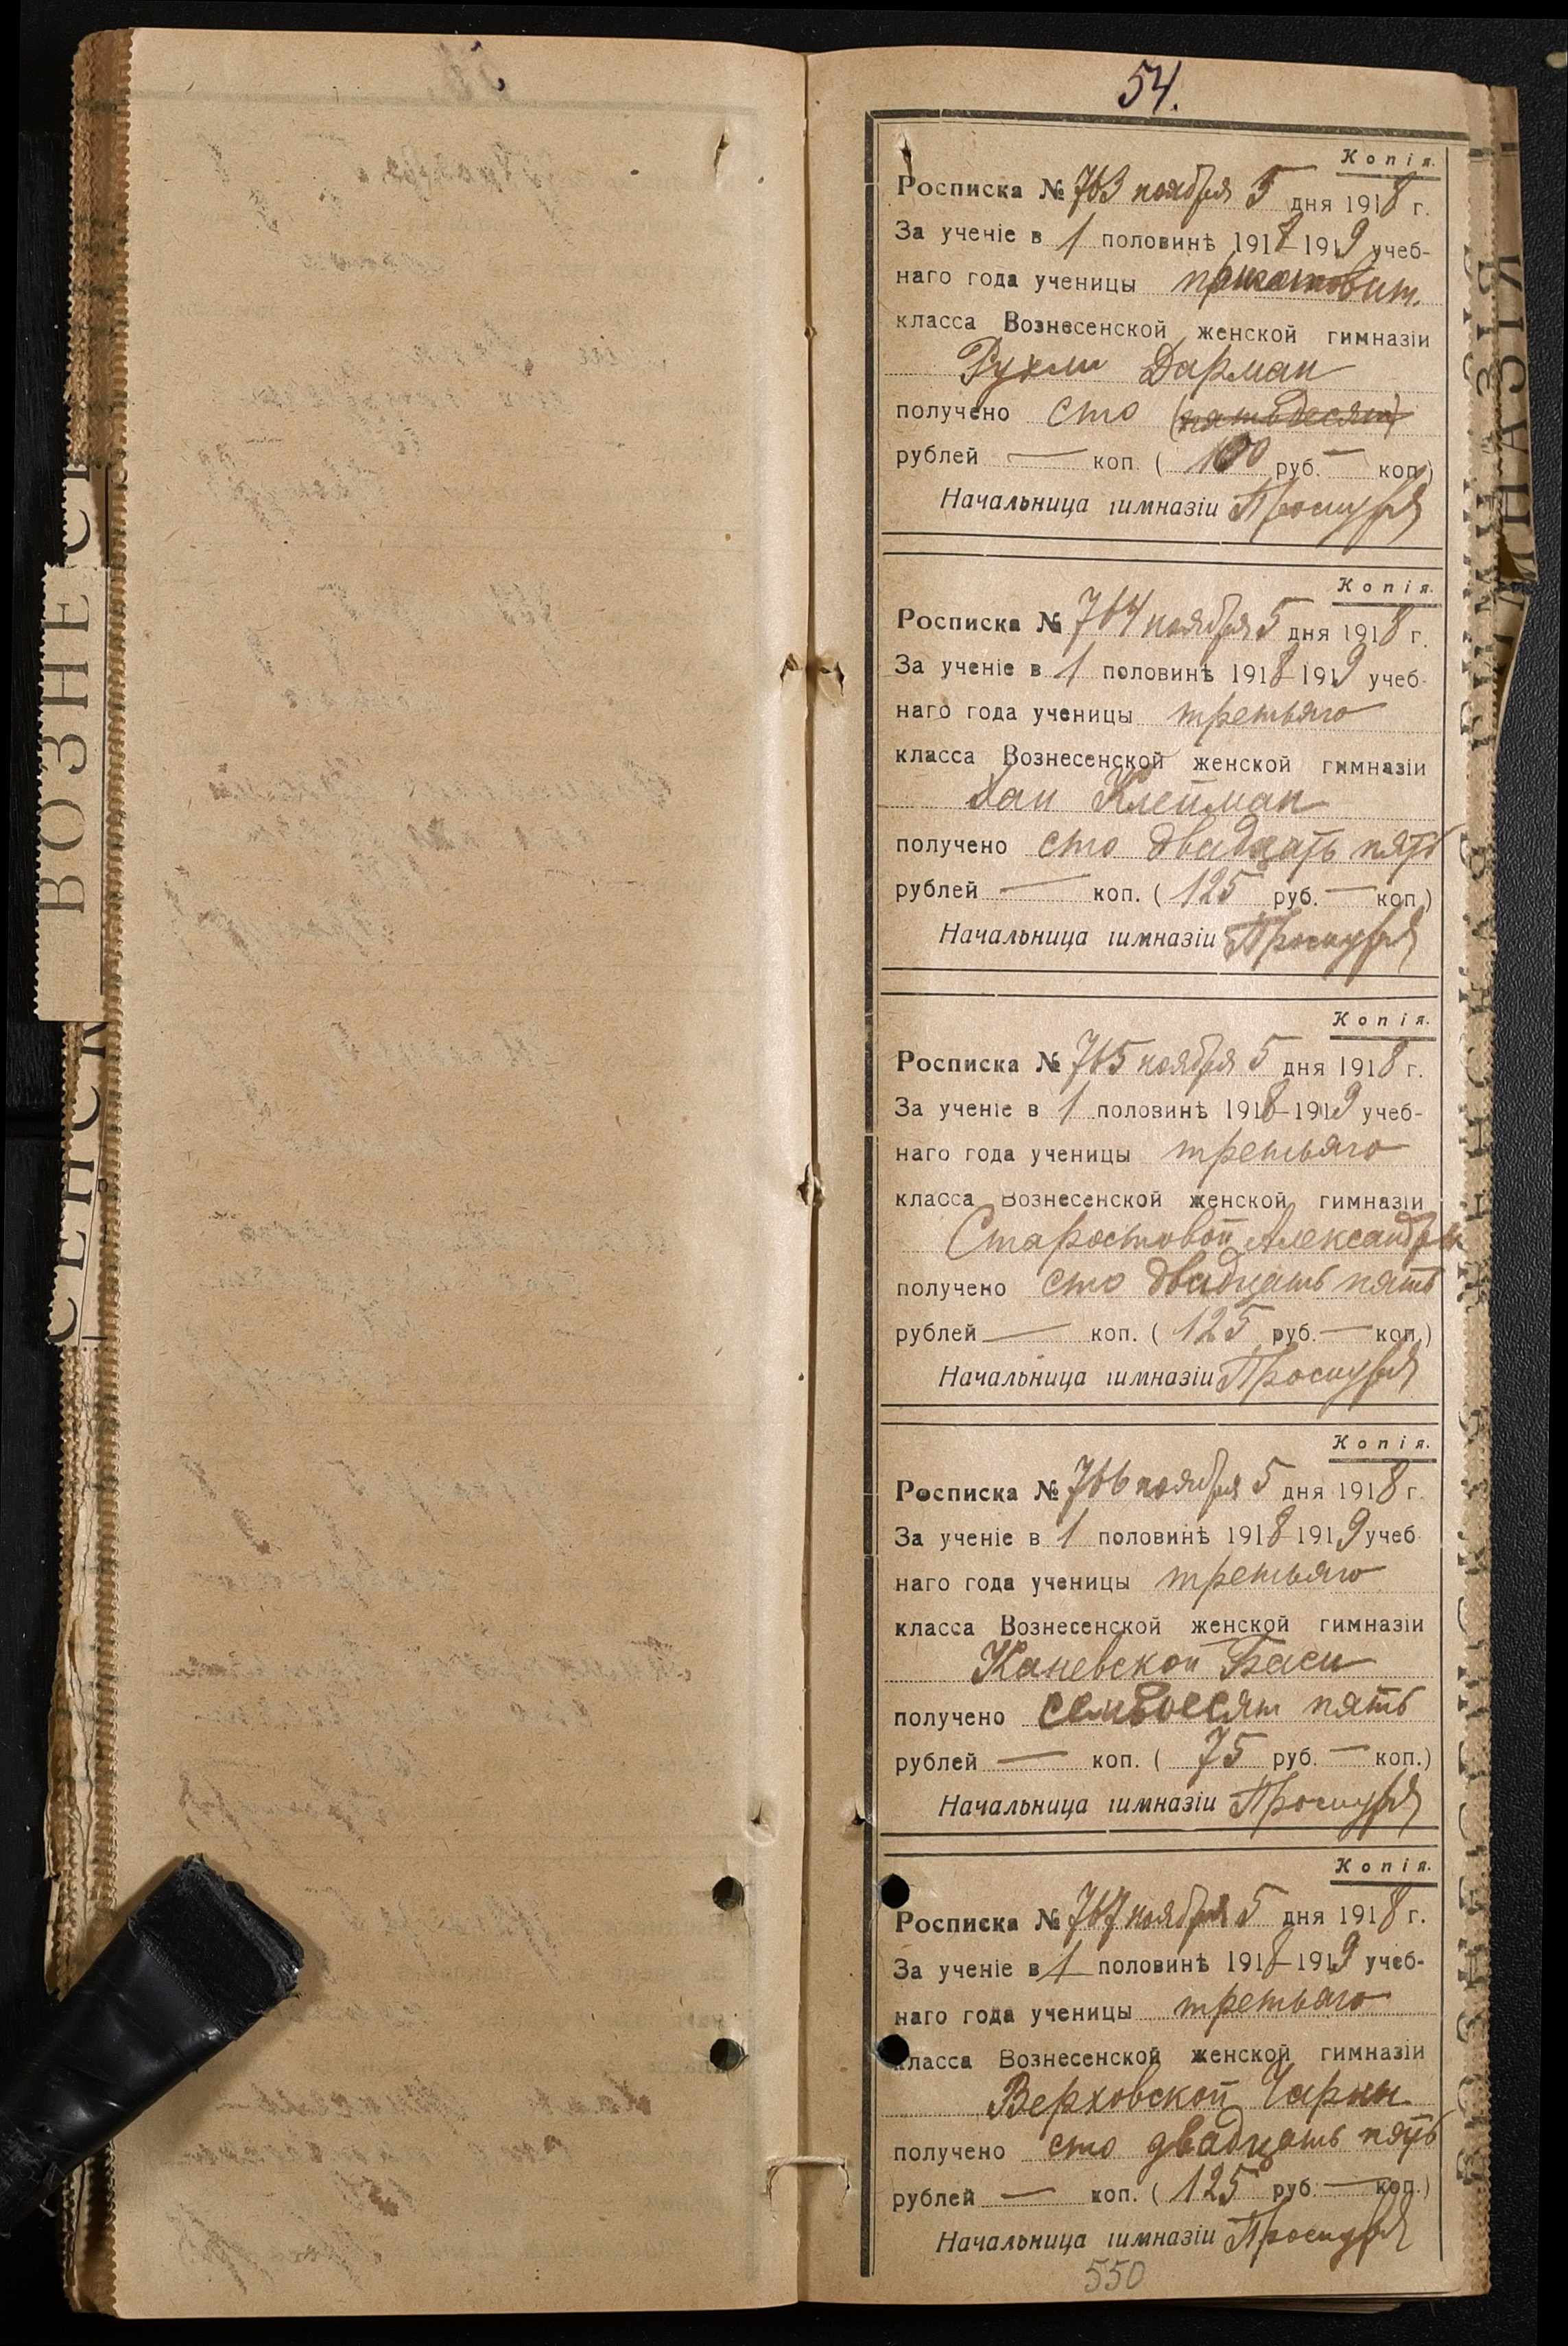 54.
Копія.
Росписка № 763 ноября 5 дня 1918 г.
За ученіе в 1 половинѣ 1918-1919 учеб-
наго года ученицы приготовит.
класса Вознесенской женской гимназіи
Рухли Дарман
получено сто (пятьдесят)
рублей — коп. ( 100 руб. — коп.)
Начальница гимназіи
Копія.
Росписка № 764 ноября 5 дня 1918 г.
За ученіе в 1 половинѣ 1918-1919 учеб-
наго года ученицы третьяго
класса Вознесенской женской гимназіи
Хаи Клейман
получено сто двадцать пять
рублей — коп. ( 125 руб. — коп.)
Начальница гимназіи
Копія.
Росписка № 765 ноября 5 дня 1918 г.
За ученіе в 1 половинѣ 1918-1919 учеб-
наго года ученицы третьяго
класса Вознесенской женской гимназіи
Старостовой Александры
получено сто двадцать пять
рублей — коп. ( 125 руб. — коп.)
Начальница гимназіи
Копія.
Росписка № 766 ноября 5 дня 1918 г.
За ученіе в 1 половинѣ 1918-1919 учеб
наго года ученицы третьяго
класса Вознесенской женской гимназіи
Каневской Баси
получено семьдесят пять
рублей — коп. ( 75 руб. — коп.)
Начальница гимназіи
Копія.
Росписка № 767 ноября 5 дня 1918 г.
За ученіе в 1 половинѣ 1918-1919 учеб-
наго года ученицы третьяго
класса Вознесенской женской гимназіи
Верховской Чарны
получено сто двадцать пять
рублей — коп. ( 125 руб. — коп.)
Начальница гимназіи
550
ВОЗНЕ
СЕНСК